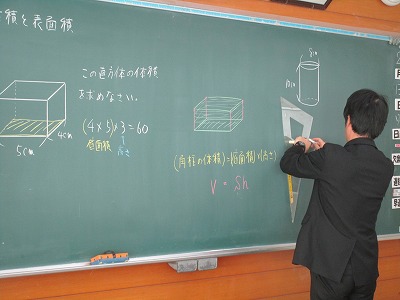 積と表面積
この直方体の体積
を求めなさい。
(4×5)×3=60
底面積
高さ
4cm
5cm
(角柱の体積)=(底面積)×(高さ)
V = Sh